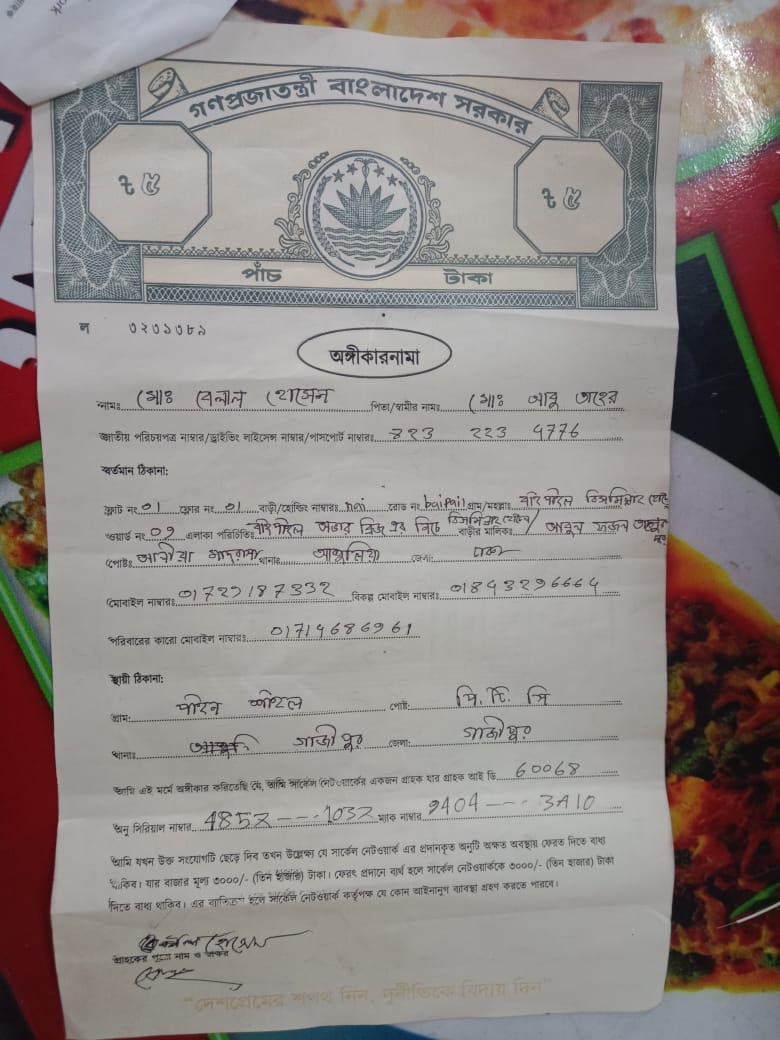 গণপ্রজাতন্ত্রী বাংলাদেশ সরকার
৳ ৫ ৳ ৫
পাঁচ টাকা
ল ৩২৩১৩৮৯
অঙ্গীকারনামা
নামঃ মোঃ বেলাল হোসেন পিতা/স্বামীর নামঃ মোঃ আবু তাহের
জাতীয় পরিচয়পত্র নাম্বার/ড্রাইভিং লাইসেন্স নাম্বার/পাসপোর্ট নাম্বারঃ 823 223 4776
বর্তমান ঠিকানা:
ফ্লাট নং 01 ফ্লোর নং 01 বাড়ী/হোল্ডিং নাম্বারঃ রোড নং baipail গ্রাম/মহল্লাঃ
ওয়ার্ড নং 09 এলাকা পরিচিতিঃ বাড়ীর মালিকঃ
পোষ্টঃ থানাঃ আশুলিয়া জেলা: ঢাকা
মোবাইল নাম্বারঃ 01729187332 বিকল্প মোবাইল নাম্বারঃ 01843296664
পরিবারের কারো মোবাইল নাম্বারঃ 01714686961
স্থায়ী ঠিকানা:
গ্রাম: পোষ্ট: পি. টি. সি
থানাঃ গাজীপুর জেলা: গাজীপুর
আমি এই মর্মে অঙ্গীকার করিতেছি যে, আমি সার্কেল নেটওয়ার্কের একজন গ্রাহক যার গ্রাহক আই ডি 60068
অনু সিরিয়াল নাম্বার 485Z --- 1032 ম্যাক নাম্বার 9404 --- 3A10
আমি যখন উক্ত সংযোগটি ছেড়ে দিব তখন উল্লেক্ষ্য যে সার্কেল নেটওয়ার্ক এর প্রদানকৃত অনুটি অক্ষত অবস্থায় ফেরত দিতে বাধ্য
থাকিব। যার বাজার মূল্য ৩০০০/- (তিন হাজার) টাকা। ফেরৎ প্রদানে ব্যর্থ হলে সার্কেল নেটওয়ার্ককে ৩০০০/- (তিন হাজার) টাকা
দিতে বাধ্য থাকিব। এর ব্যতিক্রম হলে সার্কেল নেটওয়ার্ক কর্তৃপক্ষ যে কোন আইনানুগ ব্যবস্থা গ্রহণ করতে পারবে।
বেলাল হোসেন
গ্রাহকের পুরো নাম ও স্বাক্ষর
"দেশপ্রেমের শপথ নিন, দুর্নীতিকে বিদায় দিন"